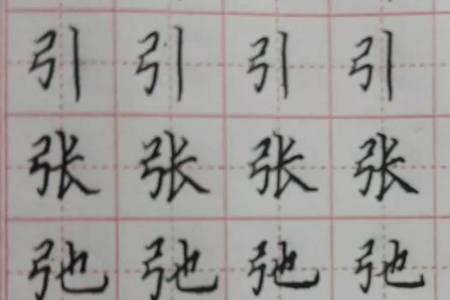 引引引引
张张张张
弛弛弛弛